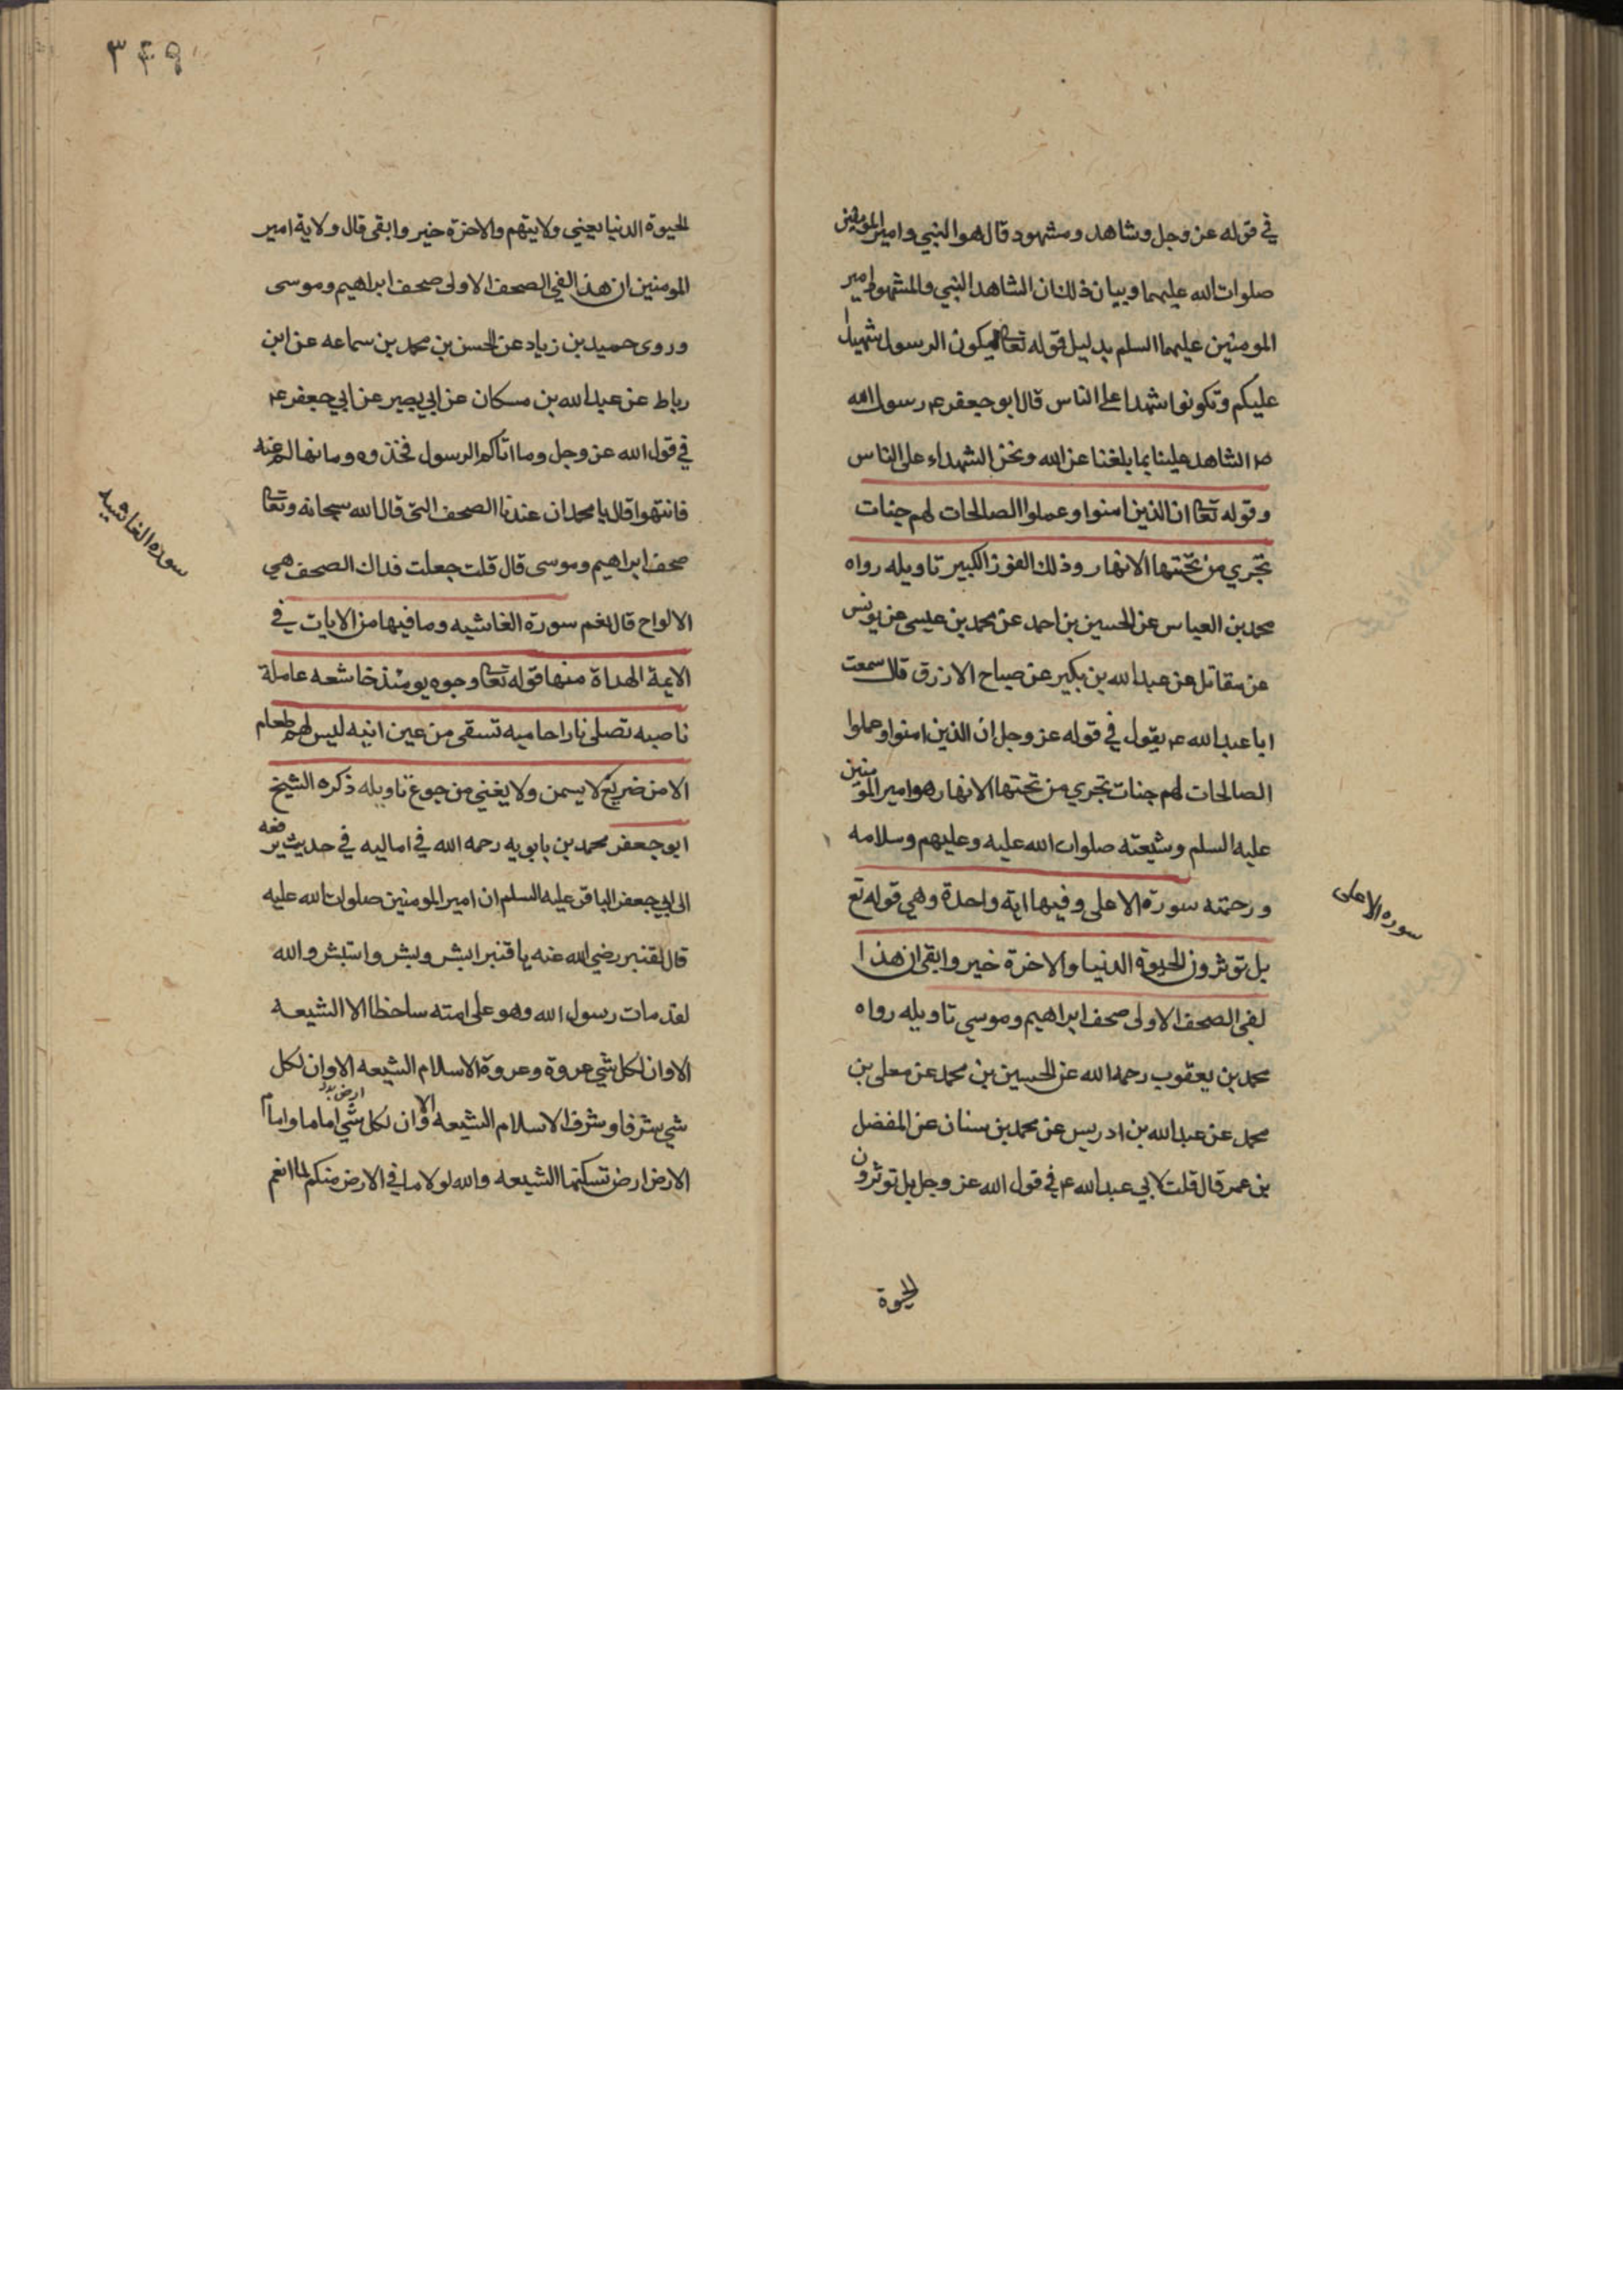 في قوله عز وجل وشاهد ومشهود قال هو النبي وامير المومنين
صلوات الله عليهما وبيان ذلك ان الشاهد النبي والمشهود امير
المومنين عليهما السلم بدليل قوله تعالى ليكون الرسول شهيدا
عليكم وتكونوا شهدا على الناس قال ابو جعفر عم رسول الله
ص الشاهد علينا بما بلغنا عن الله ونحن الشهداء على الناس
وقوله تعالى ان الذين امنوا وعملوا الصالحات لهم جنات
تجري من تحتها الانهار وذلك الفوز الكبير تاويله رواه
محمد بن العباس عن الحسين بن احمد عن محمد بن عيسى عن يونس
عن مقاتل عن عبدالله بن بكير عن صباح الازرق قال سمعت
ابا عبدالله عم يقول في قوله عز وجل ان الذين امنوا وعملوا
الصالحات لهم جنات تجري من تحتها الانهار هو امير المومنين
عليه السلم وشيعته صلوات الله عليه وعليهم وسلامه
ورحمته سورة الاعلى وفيها اية واحدة وهي قوله تع
بل توثرون الحيوة الدنيا والاخرة خير وابقى ان هذا
لفي الصحف الاولى صحف ابراهيم وموسي تاويله رواه
محمد بن يعقوب رحمه الله عن الحسين بن محمد عن معلى بن
محمد عن عبدالله بن ادريس عن محمد بن سنان عن المفضل
بن عمر قال قلت لابي عبدالله عم في قول الله عز وجل بل توثرون
الحيوة
سوره الاعلى
٣٤٩
الحيوة الدنيا يعني ولايتهم والاخرة خير وابقى قال ولاية امير
المومنين ان هذا لفي الصحف الاولى صحف ابراهيم وموسى
وروى حميد بن زياد عن الحسن بن محمد بن سماعه عن ابن
رباط عن عبدالله بن مسكان عن ابي بصير عن ابي جعفر عم
في قول الله عز وجل وما اتاكم الرسول فخذوه وما نهاكم عنه
فانتهوا قال يا محمد ان عندنا الصحف التي قال الله سبحانه وتعالى
صحف ابراهيم وموسى قال قلت جعلت فداك الصحف هي
الالواح قال نعم سورة الغاشيه وما فيها من الايات في
الايمة الهداة منها قوله تعالى وجوه يومئذ خاشعه عاملة
ناصبه تصلى نارا حاميه تسقى من عين انيه ليس لهم طعام
الا من ضريع لا يسمن ولا يغني من جوع تاويله ذكره الشيخ
ابو جعفر محمد بن بابويه رحمه الله في اماليه في حديث يرفعه
الى ابي جعفر الباقر عليه السلم ان امير المومنين صلوات الله عليه
قال لقنبر رضي الله عنه يا قنبر ابشر وبشر واستبشر والله
لقد مات رسول الله وهو على امته ساخطا الا الشيعه
الا وان لكل شي عروة وعروة الاسلام الشيعه الا وان لكل
شي شرفا وشرف الاسلام الشيعه الا وان لكل شي اماما واما
الارض ارض تسكنها الشيعه والله لولا ما في الارض منكم لما انعم
سوره الغاشيه